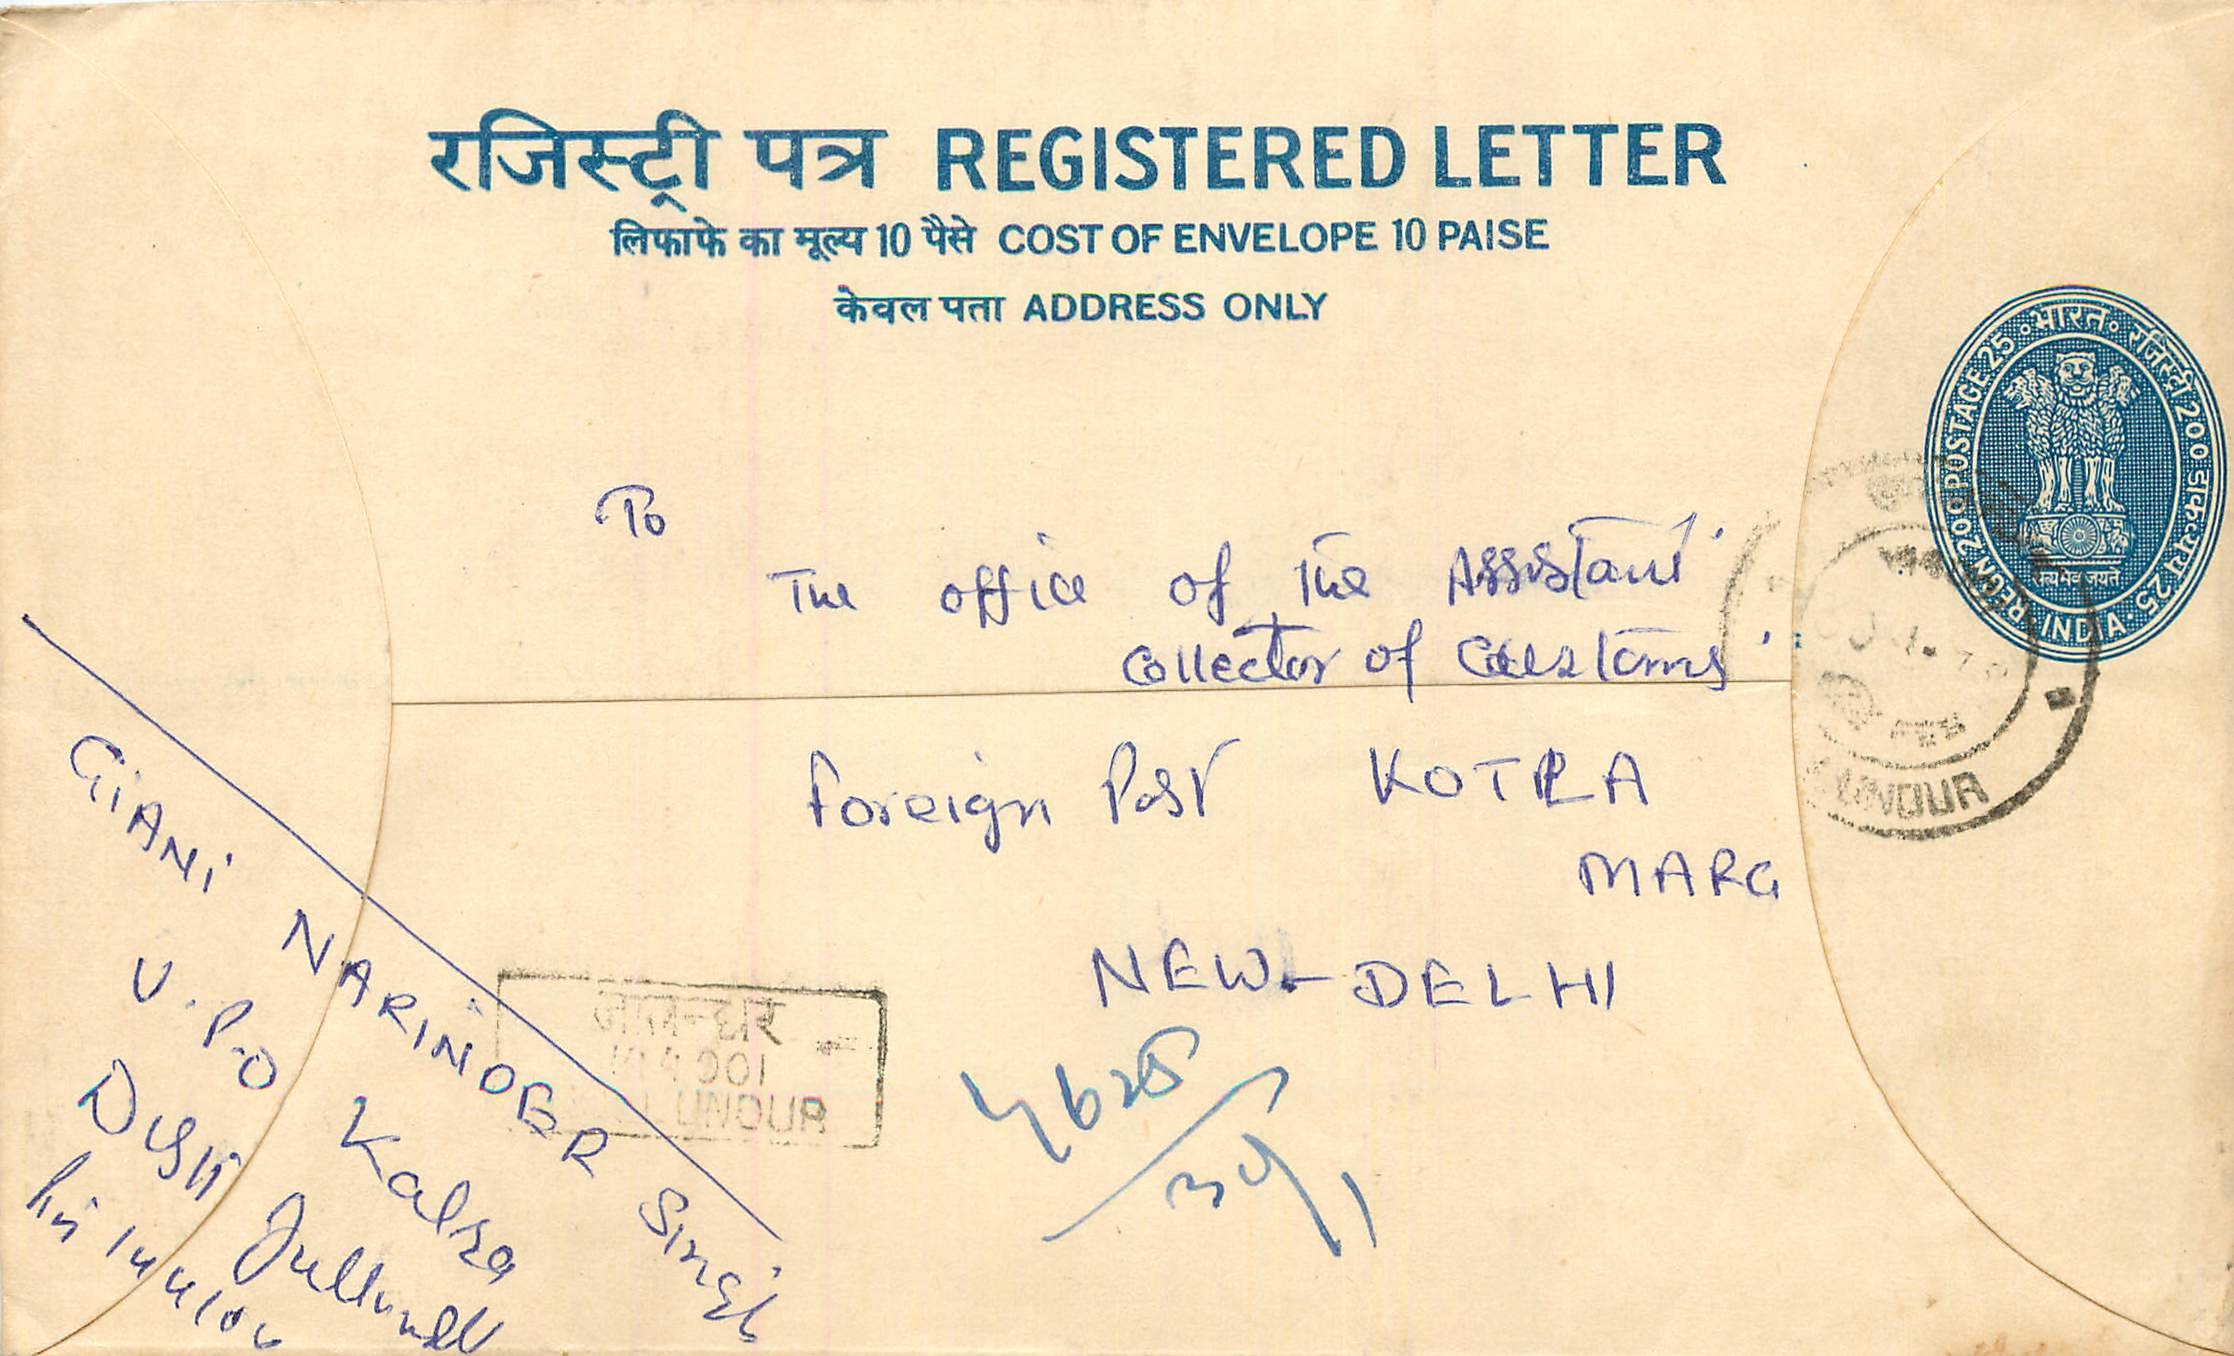 रजिस्ट्री पत्र REGISTERED LETTER
लिफाफे का मूल्य 10 पैसे COST OF ENVELOPE 10 PAISE
केवल पता ADDRESS ONLY
भारत रजिस्ट्री 200 डाकव्यय 25 INDIA REGN 200 POSTAGE 25
सत्यमेव जयते
To
The office of The Assistant
Collector of Customs
Foreign Post KOTLA
MARG
NEW-DELHI
GIANI NARINDER Singh
V.P.O Kalra
Distt Jullundur
Pin 144106
जालन्धर
144001